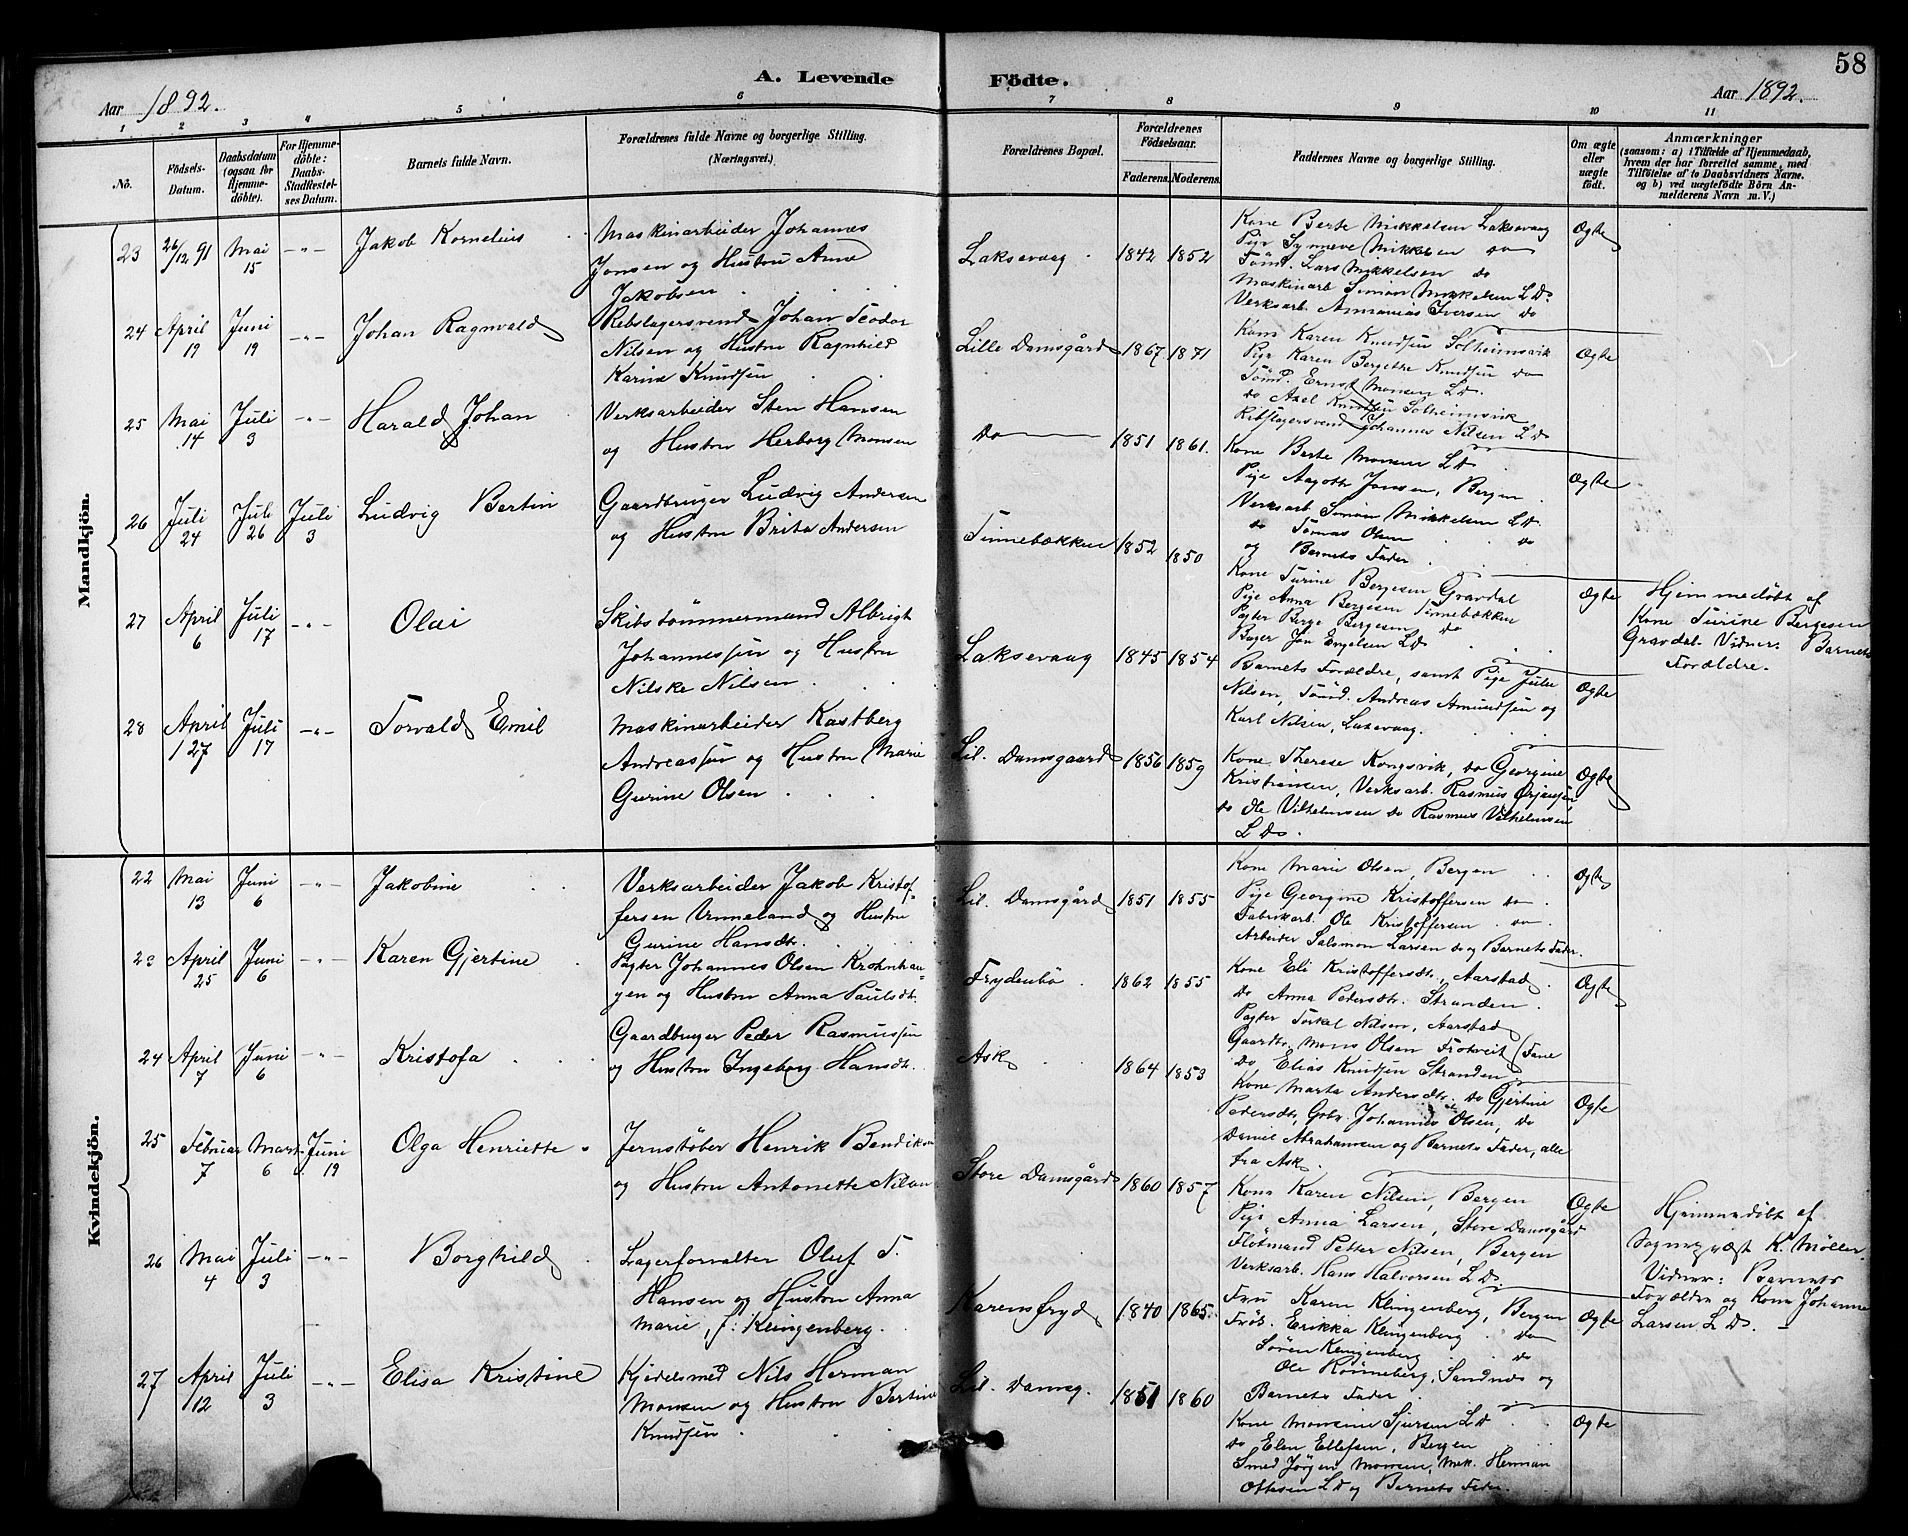 58
A. Levende Födte.
Aar 1892.
Aar 1892.
1 2 3 4 5 6 7 8 9 10 11
No.
Födsels-
Datum.
Daabsdatum
(ogsaa for
Hjemme-
döbte).
For Hjemme-
döbte:
Daabs-
Stadfæstel-
ses Datum.
Barnets fulde Navn.
Forældrenes fulde Navne og borgerlige Stilling.
(Næringsvei.)
Forældrenes Bopæl.
Forældrenes
Födselsaar.
Faderens. Moderens.
Faddernes Navne og borgerlige Stilling.
Om ægte
eller
uægte
födt.
Anmærkninger
(saasom: a) i Tilfælde af Hjemmedaab,
hvem der har forrettet samme, med
Tilföielse af to Daabsvidners Navne.
og b) ved uægtefödte Börn An-
melderens Navn m. V.)
Mandkjön.
23 26/12 91 Mai 15 -"- Jakob Kornelius
Maskinarbeider Johannes
Jonsen og Hustru Anna
Jakobsen
Laksevaag 1842 1852
Kone Berte Mikkelsen Laksevaag
Pige Synneve Mikkelsen do
Tömd. Lars Mikkelsen do
Maskinarb Simon Mikkelsen L D.
Verksarb. Annanias Iversen do
Ægte
24 April 19 Juni 19 -"- Johan Ragnvald
Rebslagersvend Johan Teodor
Nilsen og Hustru Ragnhild
Karine Knudsen
Lille Damsgård 1867 1871
Kone Karen Knudsen Solheimsvik
Pige Karen Bergitte Knudsen do
Tömd. Ernst Monsen L D.
do Axel Knudsen Solheimsvik
Rebslagersvend Johannes Nilsen L D
Ægte
25 Mai 14 Juli 3 -"- Harald Johan
Verksarbeider Sten Hansen
og Hustru Herborg Monsen
Do 1851 1861.
Kone Berte Monsen L D.
Pige Aagoth Jansen, Bergen
Verksarb Simon Mikkelsen L D.
do Tomas Olsen do
og Barnets Fader
Ægte
26 Juli 24 Juli 26 Juli 3 Ludvig Bertin
Gaardbruger Ludvig Andersen
og Hustru Brita Andersen
Tinnebækken 1852 1850
Kone Turine Bergesen Gravdal
Pige Anna Bergesen Tinnebækken
Pagter Berge Bergesen do
Bager Jon Engelsen L D
Ægte
Hjemmedøbt af
Kone Turine Bergesen
Gravdal. Vidner: Barnets
Forældre.
27 April 6 Juli 17 -"- Olai
Skibstömmermand Albrigt
Johannessen og Hustru
Nilske Nilsen
Laksevaag 1845 1854
Barnets Forældre, samt Pige Julie
Nilsen, Tömd. Andreas Amundsen og
Karl Nilsen, Laksevaag.
Ægte
28 April 27 Juli 17 -"- Torvald Emil
Maskinarbeider Kastberg
Andreassen og Hustru Marie
Gurine Olsen
Lil. Damsgaard 1856 1859
Kone Therese Kongsvik, do Georgine
Kristiansen, Verksarb. Rasmus Örjansen
do Ole Vilhelmsen do Rasmus Vilhelmsen
L D.
Ægte
Kvindekjön.
22 Mai 13 Juni 6 -"- Jakobine
Verksarbeider Jakob Kristof-
fersen Vinneland og Hustru
Gurine Hansdt.
Lil. Damsgård 1851 1855
Kone Marie Olsen, Bergen
Pige Georgine Kristoffersen do
Fabrikarb. Ole Kristoffersen do
Arbeider Salomon Larsen do og Barnets Fader.
Ægte
23 April 25 Juni 6 -"- Karen Gjertine
Pagter Johannes Olsen Krohnhau-
gen og Hustru Anna Paulsdt.
Frydenbö 1862 1855
Kone Eli Kristoffersdt, Aarstad
Do Anna Pedersdt. Stranden
Pagter Torkel Nilsen, Aarstad
Gaardbr. Mons Olsen Frotveit, Fane
Do Elias Knudsen Stranden
Ægte
24 April 7 Juni 6 -"- Kristofa
Gaardbruger Peder Rasmussen
og Hustru Ingeborg Hansdt.
Ask 1864 1853
Kone Marta Andersdt. Do Gjertine
Pedersdt, Grbr. Johannes Olsen, Do
Daniel Abrahamsen og Barnets Fader, alle
fra Ask.
Ægte
25 Februar 7 Marts 6 Juni 19 Olga Henriette
Jernstöber Henrik Bendiksen
og Hustru Antonette Nilsen
Store Damsgård 1860 1857
Kone Karen Nilsen, Bergen
Pige Anna Larsen, Store Damsgård
Flötmand Petter Nilsen, Bergen
Verksarb. Hans Halvorsen L D.
Ægte
Hjemmedøbt af
Sognepræst K. Möller.
Vidner: Barnets
Forældre og Kone Johanne
Larsen L D.
26 Mai 4 Juli 3 -"- Borghild
Lagerforvalter Oluf T.
Hansen og Hustru Anna
Marie, f: Klingenberg.
Karensfryd 1840 1865
Fru Karen Klingenberg, Bergen
Frök. Erikka Klingenberg do
Sören Klingenberg do
Ole Rönneberg, Sandnes og
Barnets Fader
Ægte
27 April 12 Juli 3 -"- Elisa Kristine
Kjedelsmed Nils Herman
Monsen og Hustru Bertine
Knudsen
Lil. Damsg. 1851 1860
Kone Monsine Sjursen L D
do Elen Ellefsen, Bergen
Smed Jörgen Monsen, Mek. Herman
Ottesen L D og Barnets Fader.
Ægte